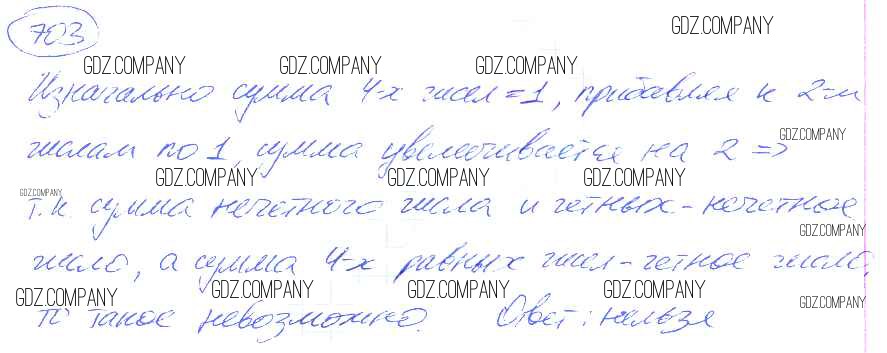 703
GDZ.COMPANY
GDZ.COMPANY GDZ.COMPANY GDZ.COMPANY
Изначально сумма 4-х чисел = 1, прибавляя к 2-м
GDZ.COMPANY
числам по 1, сумма увеличивается на 2 =>
GDZ.COMPANY GDZ.COMPANY GDZ.COMPANY
GDZ.COMPANY
т.к. сумма нечетного числа и четных - нечетное
GDZ.COMPANY
число, а сумма 4-х равных чисел - четное число,
GDZ.COMPANY GDZ.COMPANY GDZ.COMPANY GDZ.COMPANY GDZ.COMPANY
то такое невозможно. Ответ: нельзя